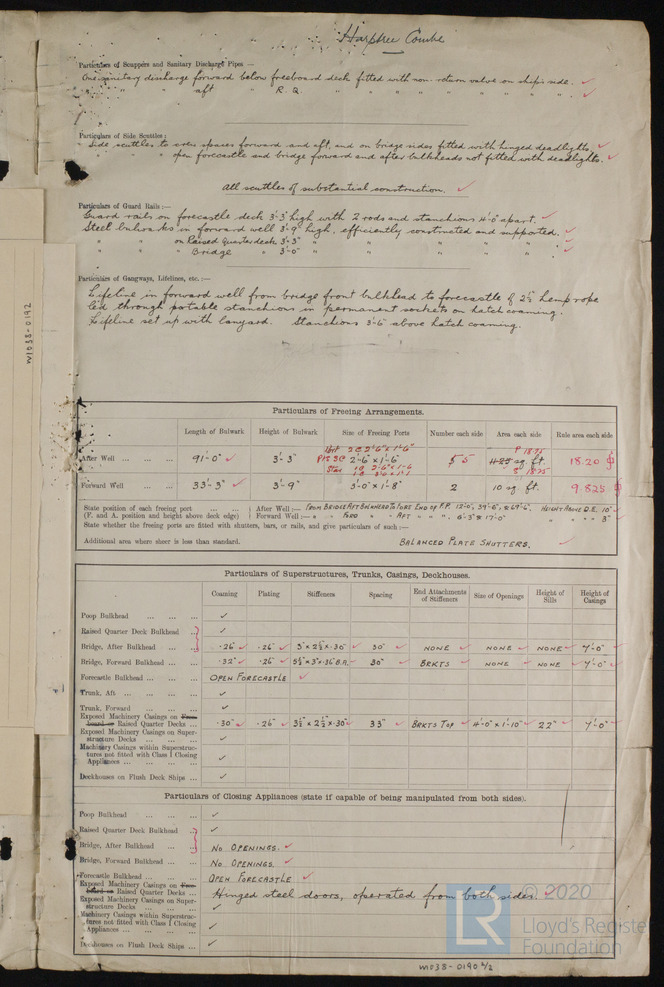 Harptree Combe
Particulars of Scuppers and Sanitary Discharge Pipes —
One sanitary discharge forward below freeboard deck fitted with non-return valve on ship's side. ✓
" " " aft " R. Q. " " " " " " " ✓
Particulars of Side Scuttles :
Side scuttles to crew spaces forward and aft, and on bridge sides fitted with hinged deadlights. ✓
" " " open forecastle and bridge forward and after bulkheads not fitted with deadlights. ✓
All scuttles of substantial construction. ✓
Particulars of Guard Rails :—
Guard rails on forecastle deck 3'-3" high with 2 rods and stanchions 4'-0" apart. ✓
Steel bulwarks in forward well 3'-9" high, efficiently constructed and supported. ✓
" " on Raised Quarter deck 3'-3" " " " " " ✓
" " " Bridge " 3'-0" " " " " " ✓
Particulars of Gangways, Lifelines, etc. :—
Lifeline in forward well from bridge front bulkhead to forecastle of 2½" hemp rope
led through portable stanchions in permanent sockets on hatch coaming.
Lifeline set up with lanyard. Stanchions 3'-6" above hatch coaming.
W1038-0192
Particulars of Freeing Arrangements.
Length of Bulwark Height of Bulwark Size of Freeing Ports Number each side Area each side Rule area each side
After Well ... ... ... 91'-0" ✓ 3'-3" 2'-6" x 1'-6" 5 18.75 sq. ft. 18.20
Forward Well ... ... 33'-3" ✓ 3'-9" 3'-0" x 1'-8" 2 10 sq. ft. 9.825
State position of each freeing port ... ... After Well :— FROM BRIDGE AFT BULKHEAD TO FORE END OF F.P. 12'-0", 39'-6", & 69'-6". HEIGHT ABOVE D.E. 10" ✓
(F. and A. position and height above deck edge) Forward Well :— " " FORD " " AFT " " " 6'-3" & 17'-0" " " " 3"
State whether the freeing ports are fitted with shutters, bars, or rails, and give particulars of such :—
Additional area where sheer is less than standard. BALANCED PLATE SHUTTERS. ✓
Particulars of Superstructures, Trunks, Casings, Deckhouses.
Coaming Plating Stiffeners Spacing End Attachments of Stiffeners Size of Openings Height of Sills Height of Casings
Poop Bulkhead ... ... ... ✓
Raised Quarter Deck Bulkhead ... ✓
Bridge, After Bulkhead ... ... .26" ✓ .26" ✓ 3" x 2½" x .30" ✓ 30" ✓ NONE ✓ NONE ✓ NONE ✓ 7'-0" ✓
Bridge, Forward Bulkhead ... ... .32" ✓ .26" ✓ 5½" x 3" x .36" B.A. ✓ 30" ✓ BRKTS ✓ NONE ✓ NONE ✓ 7'-0" ✓
Forecastle Bulkhead ... ... ... OPEN FORECASTLE ✓
Trunk, Aft ... ... ... ... ✓
Trunk, Forward ... ... ... ✓
Exposed Machinery Casings on Freeboard or Raised Quarter Decks ... .30" ✓ .26" ✓ 3½" x 2½" x .30" ✓ 33" ✓ BRKTS TOP ✓ 4'-0" x 1'-10" ✓ 22" ✓ 7'-0" ✓
Exposed Machinery Casings on Superstructure Decks ... ... ... ✓
Machinery Casings within Superstructures not fitted with Class I Closing Appliances ... ... ... ... ✓
Deckhouses on Flush Deck Ships ... ✓
Particulars of Closing Appliances (state if capable of being manipulated from both sides).
Poop Bulkhead ... ... ... ✓
Raised Quarter Deck Bulkhead ... ✓
Bridge, After Bulkhead ... ... NO OPENINGS. ✓
Bridge, Forward Bulkhead ... ... NO OPENINGS. ✓
Forecastle Bulkhead ... ... ... OPEN FORECASTLE ✓
Exposed Machinery Casings on Freeboard or Raised Quarter Decks ... Hinged steel doors, operated from both sides. ✓
Exposed Machinery Casings on Superstructure Decks ... ... ... ✓
Machinery Casings within Superstructures not fitted with Class I Closing Appliances ... ... ... ✓
Deckhouses on Flush Deck Ships ... ✓
LR © 2020
Lloyd's Register
Foundation
W1038-0190 ½